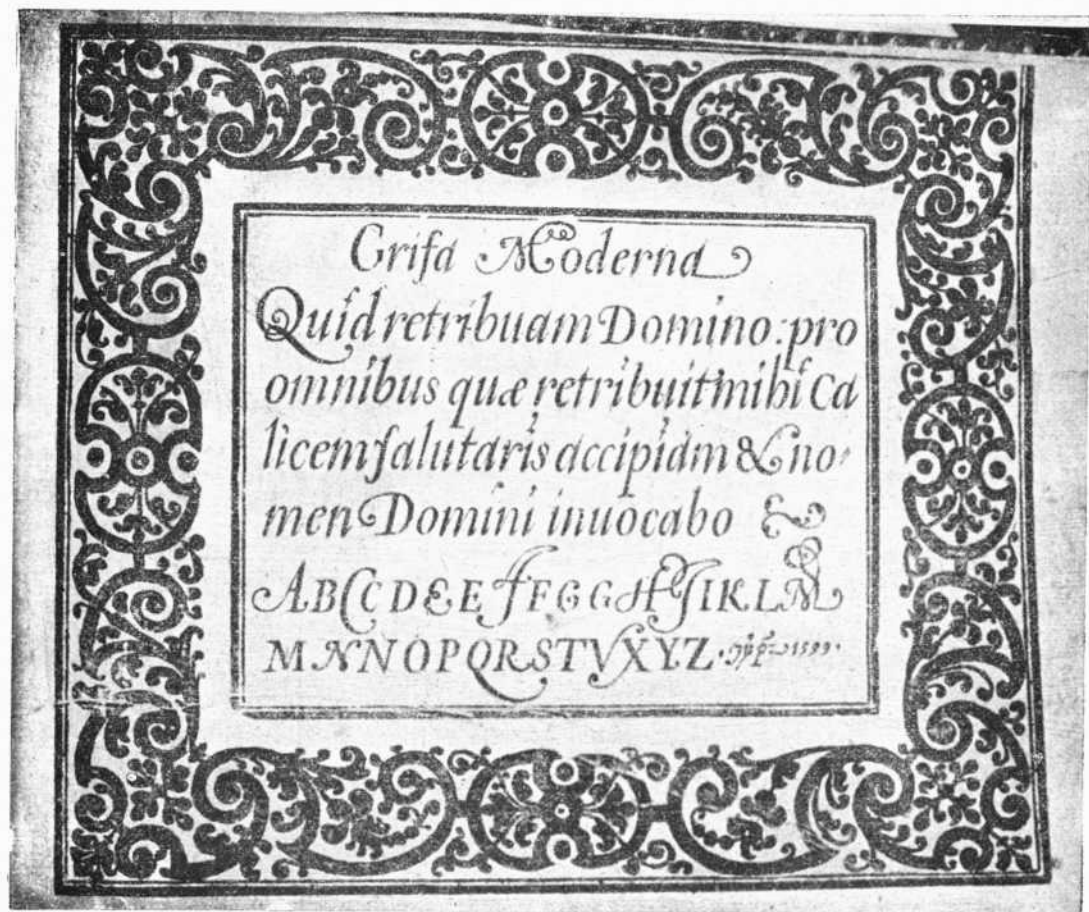 Grifa Moderna
Quid retribuam Domino: pro
omnibus quæ retribuit mihi Ca
licem salutaris accipiam & no-
men Domini inuocabo
ABCCDEEFFGGHJIKLM
MNNOPQRSTVXYZ · 1599 ·